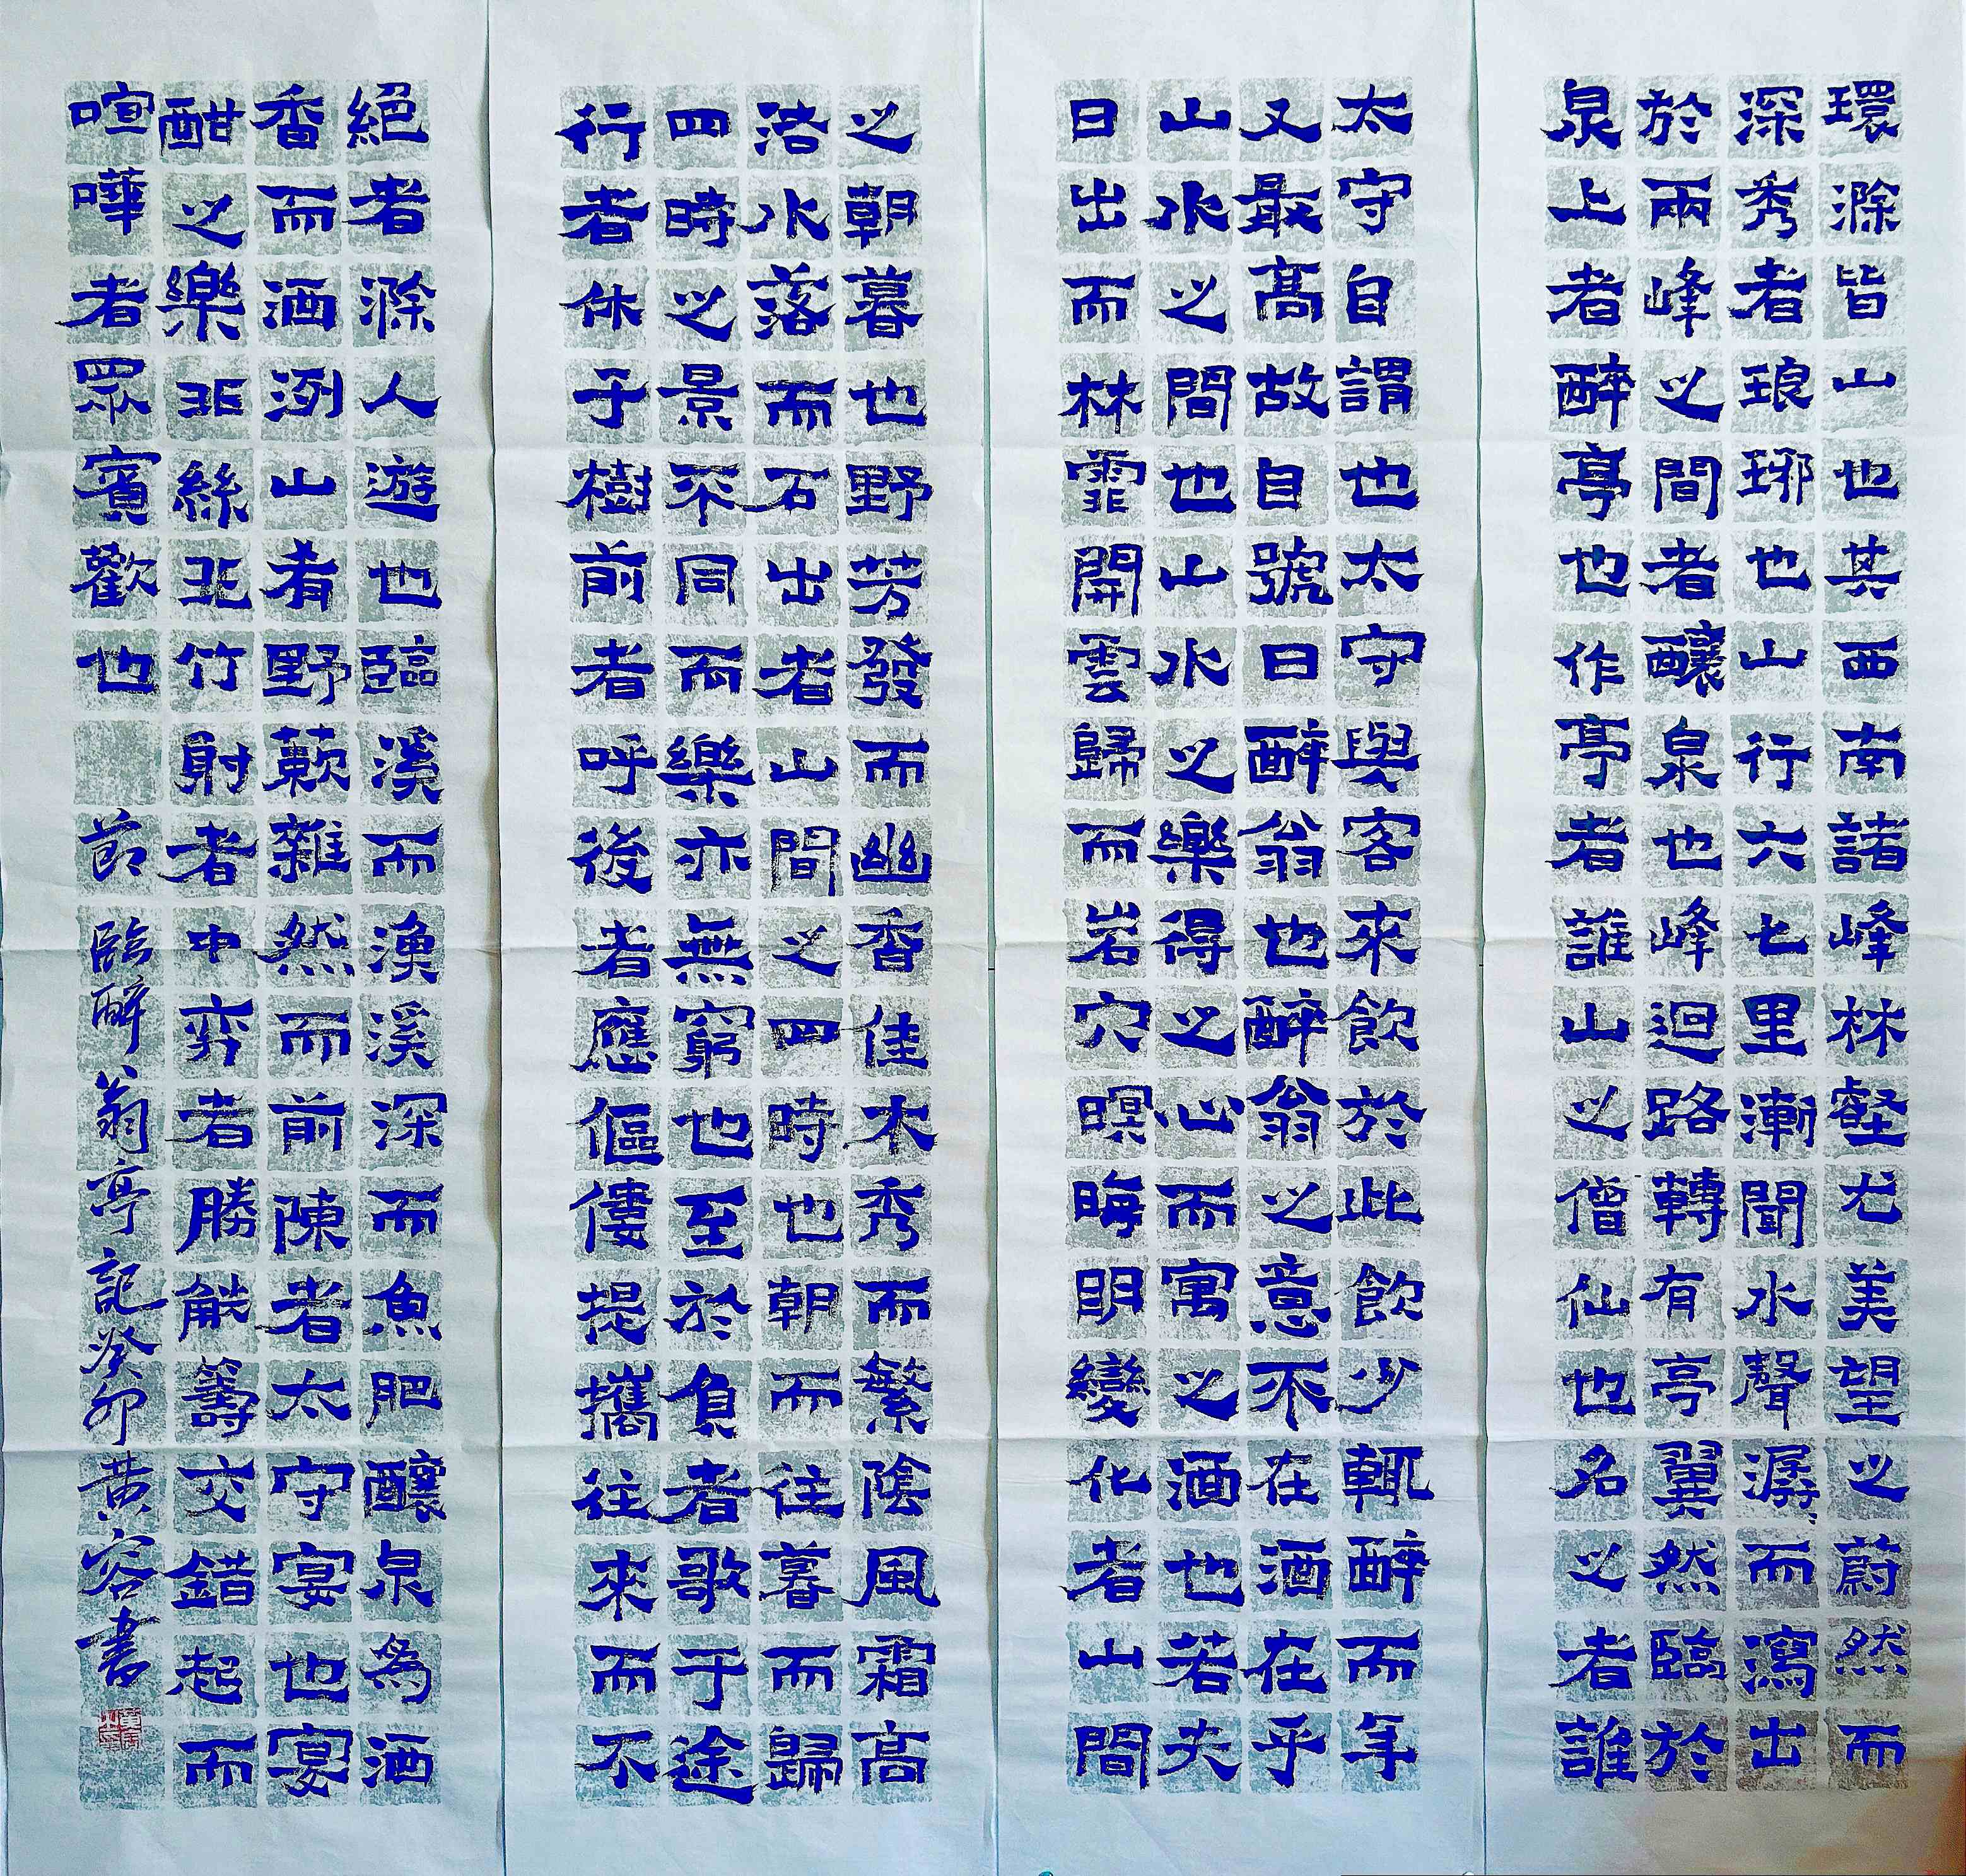 環滁皆山也其西南諸峰林壑尤美望之蔚然而
深秀者琅琊也山行六七里漸聞水聲潺々而瀉出
於兩峰之間者釀泉也峰迴路轉有亭翼然臨於
泉上者醉亭也作亭者誰山之僧仙也名之者誰
太守自謂也太守與客來飲於此飲少輒醉而年
又最高故自號曰醉翁也醉翁之意不在酒在乎
山水之間也山水之樂得之心而寓之酒也若夫
日出而林霏開雲歸而岩穴暝晦明變化者山間
之朝暮也野芳發而幽香佳木秀而繁陰風霜高
洁水落而石出者山間之四時也朝而往暮而歸
四時之景不同而樂亦無窮也至於負者歌于途
行者休于樹前者呼後者應傴僂提攜往來而不
絕者滁人遊也臨溪而漁溪深而魚肥釀泉為酒
香而酒洌山肴野蔌雜然而前陳者太守宴也宴
酣之樂非絲非竹射者中弈者勝觥籌交錯起而
喧嘩者眾賓歡也 節臨醉翁亭記癸卯黃容書